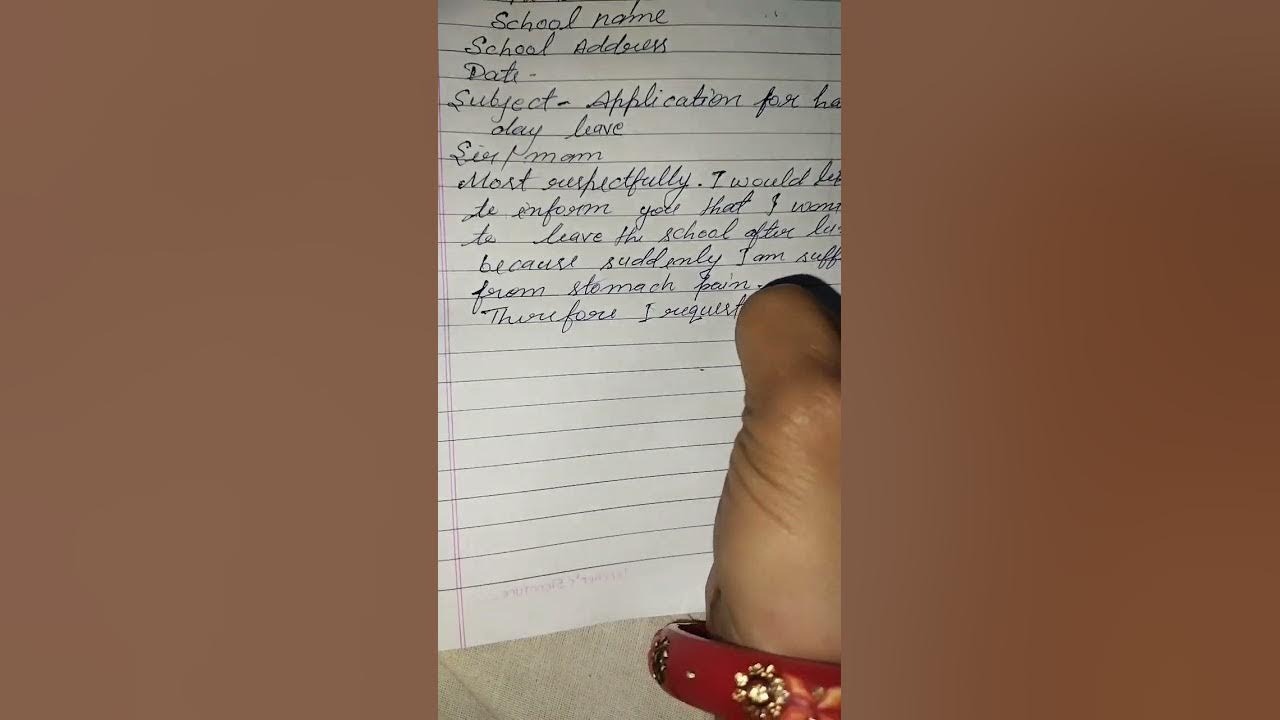 School name
School Address
Date -
Subject - Application for ha
day leave
Sir/mam
Most respectfully. I would
to inform you that I
to leave the school after
because suddenly I am suff
from stomach pain.
Therefore I request